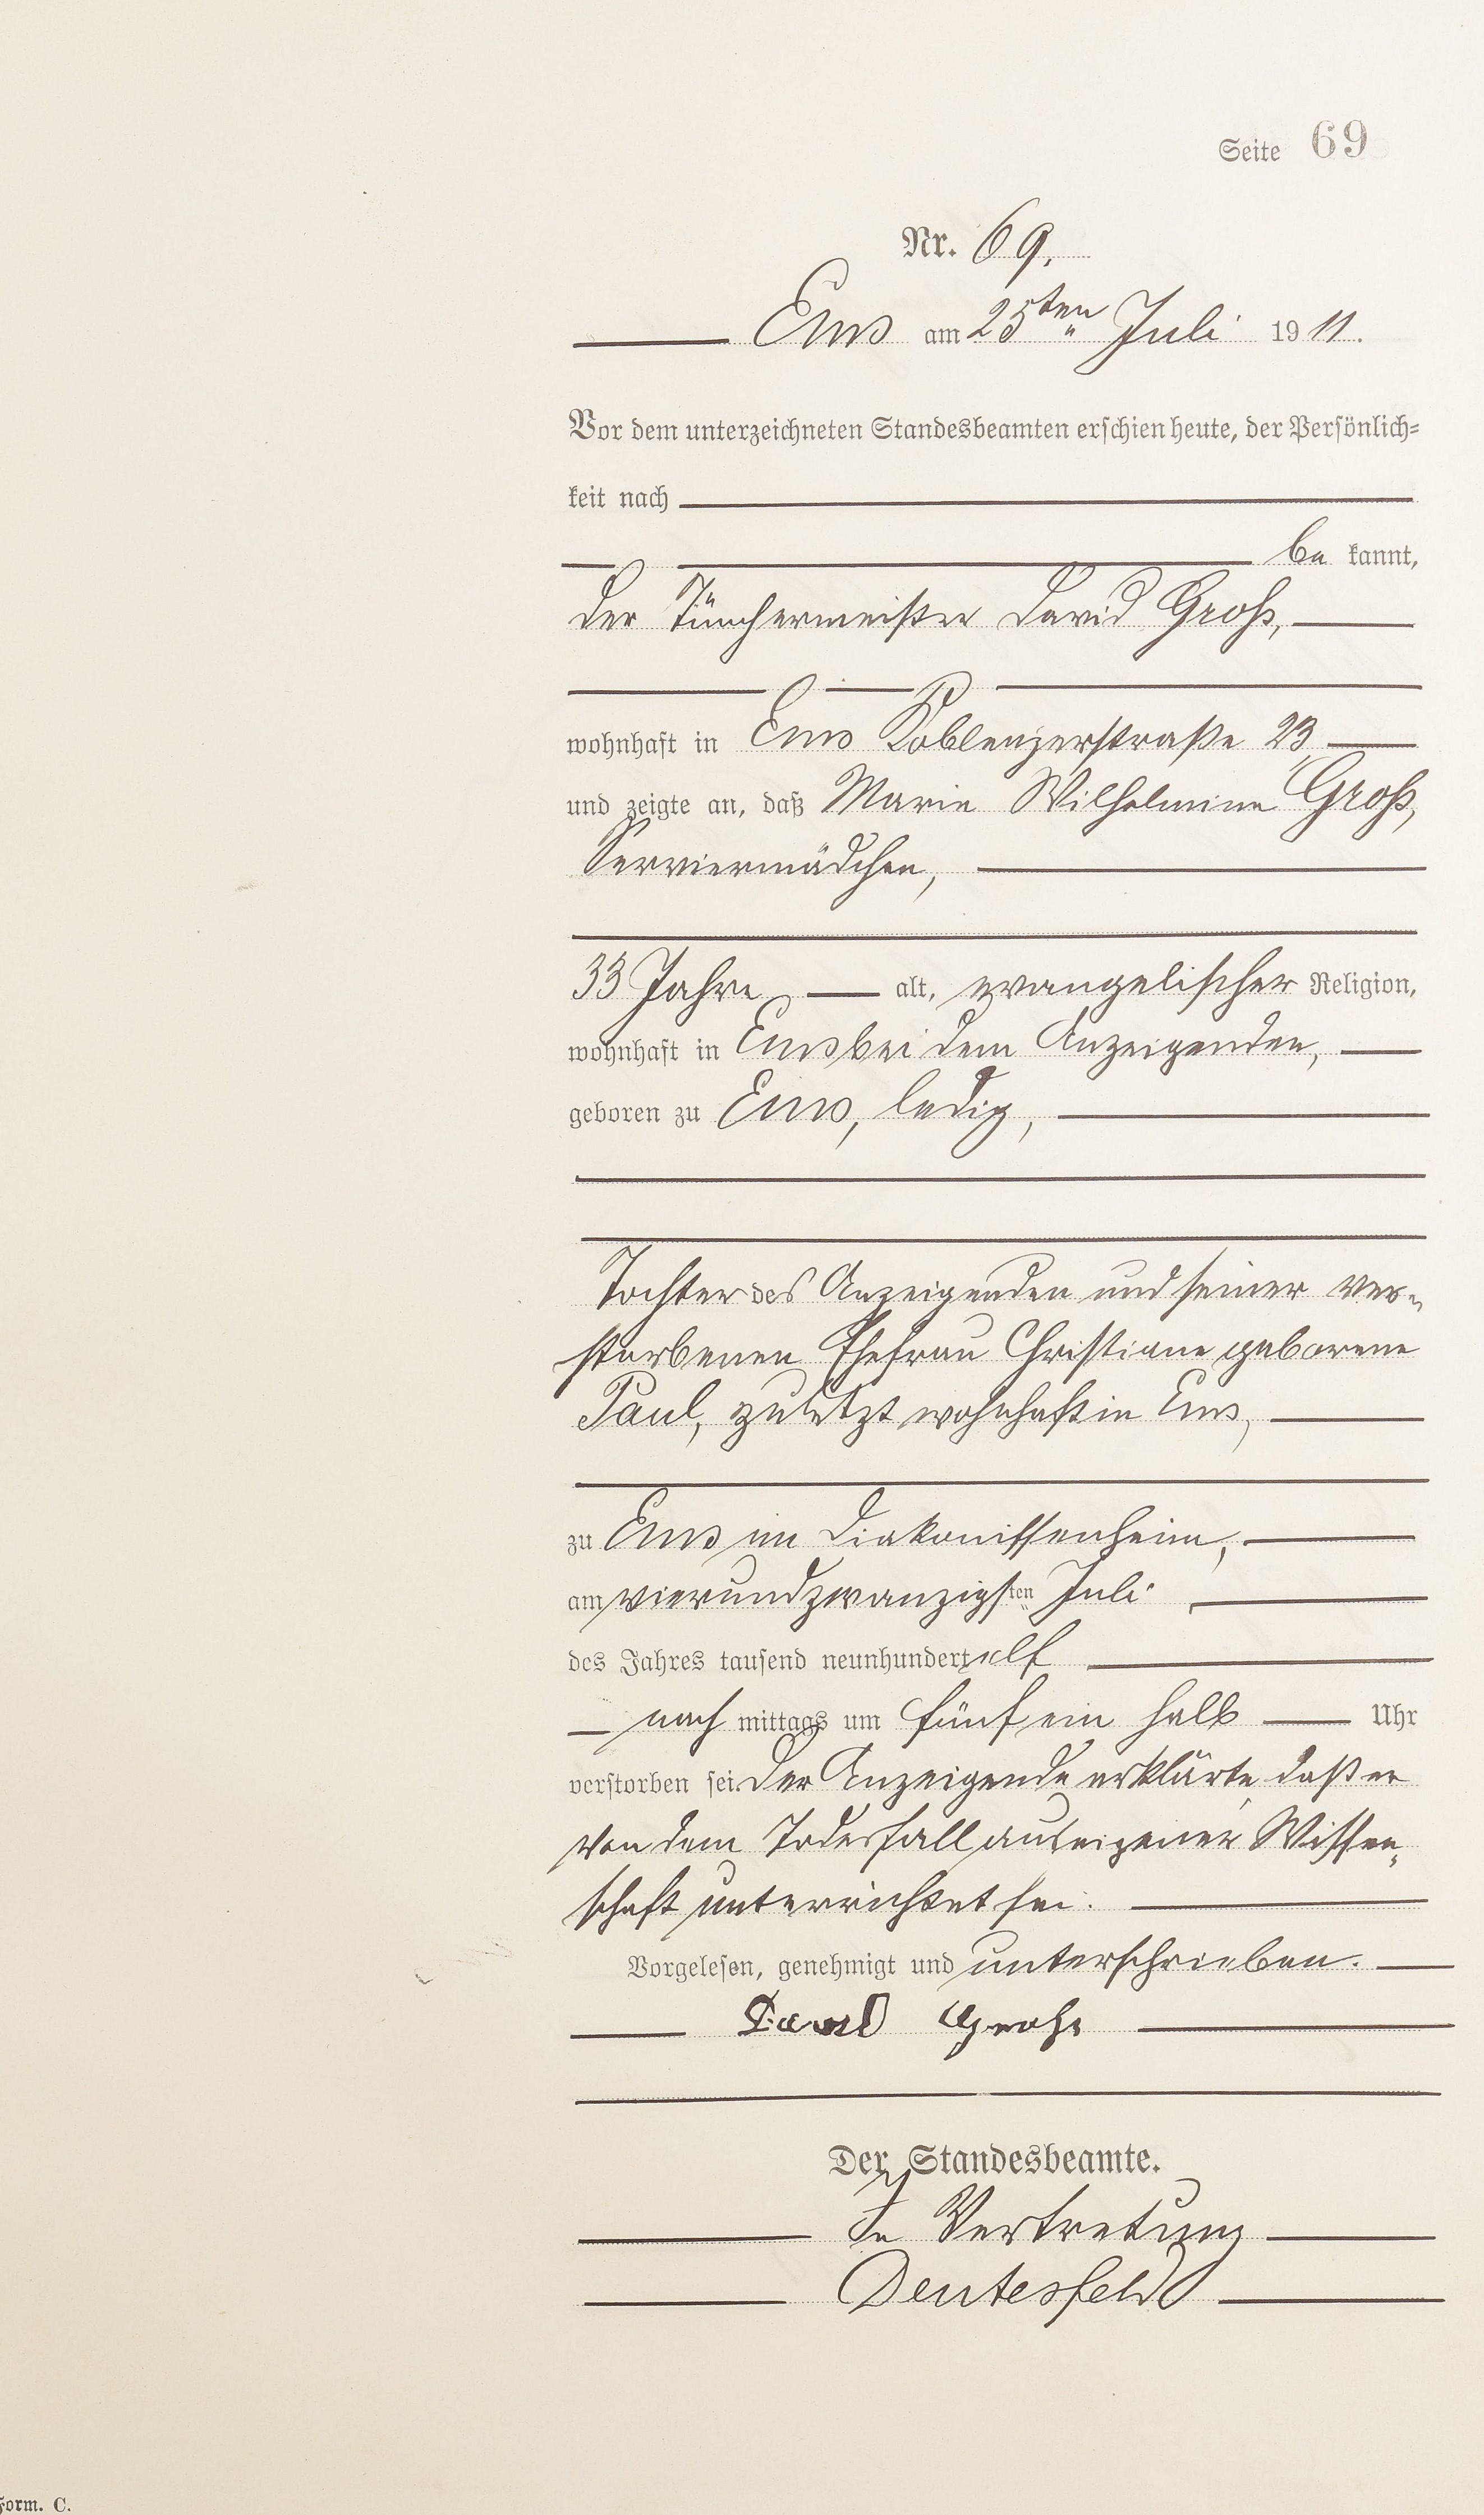 Seite 69
Nr. 69.
Ems am 25ten Juli 1911.
Vor dem unterzeichneten Standesbeamten erschien heute, der Persönlich=
keit nach
be kannt,
der Tünchermeister David Groß,
wohnhaft in Ems Koblenzerstraße 23
und zeigte an, daß Marie Wilhelmine Groß,
Serviermädchen,
33 Jahre alt, evangelischer Religion,
wohnhaft in Ems bei dem Anzeigenden,
geboren zu Ems, ledig,
Tochter des Anzeigenden und seiner ver=
storbenen Ehefrau Christiane geborene
Paul, zuletzt wohnhaft in Ems,
zu Ems im Diakonissenheim,
am vierundzwanzigsten Juli
des Jahres tausend neunhundert elf
nach mittags um fünf ein halb Uhr
verstorben sei. Der Anzeigende erklärte, daß er
von dem Todesfall aus eigener Wissen=
schaft unterrichtet sei.
Vorgelesen, genehmigt und unterschrieben.
David Groß
Der Standesbeamte.
In Vertretung
Deutesfeld
Form. C.